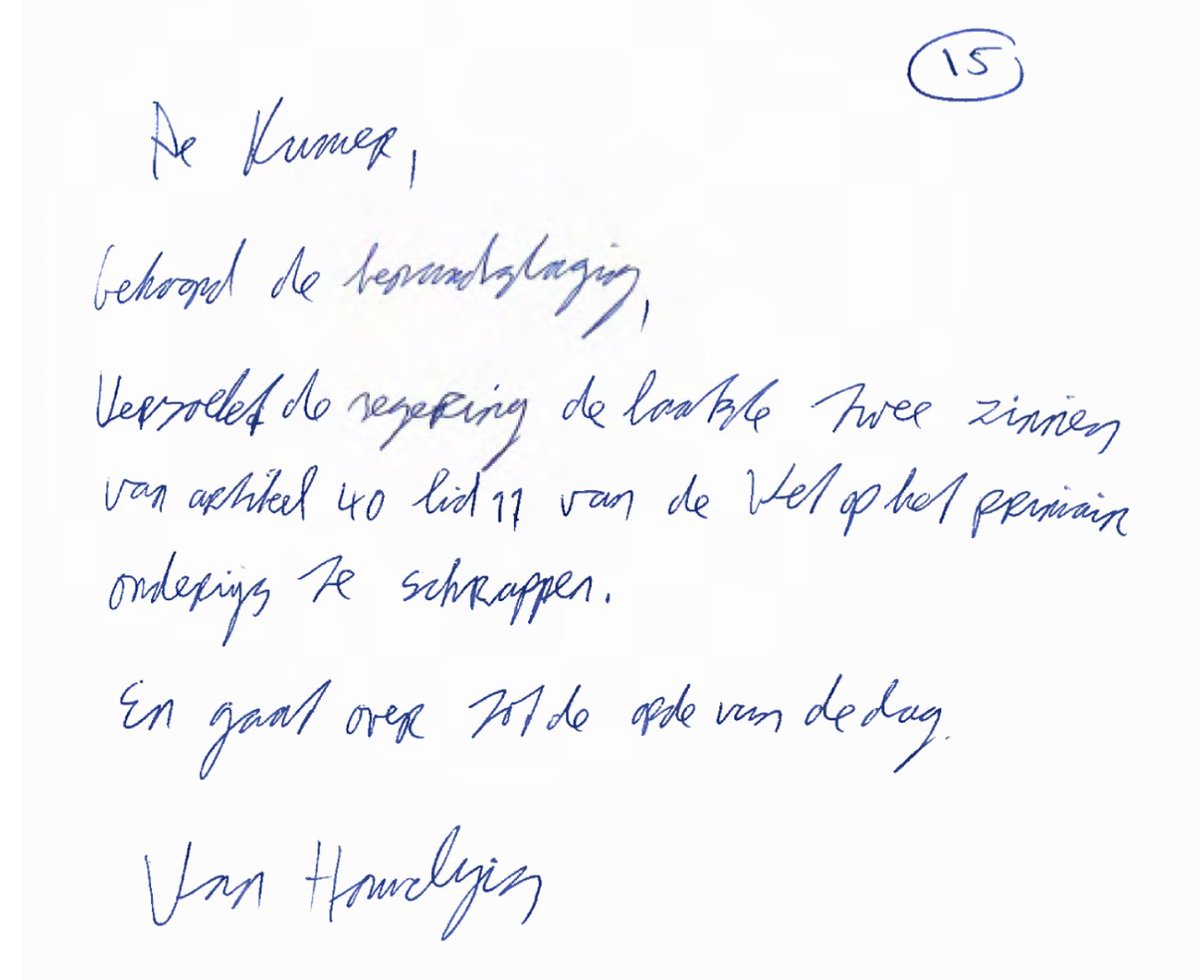 15
De Kamer,
Gehoord de beraadslaging,
Verzoekt de regering de laatste twee zinnen
van artikel 40 lid 11 van de Wet op het primair
onderijs te schrappen.
En gaat over tot de orde van de dag.
Van Houwelingen